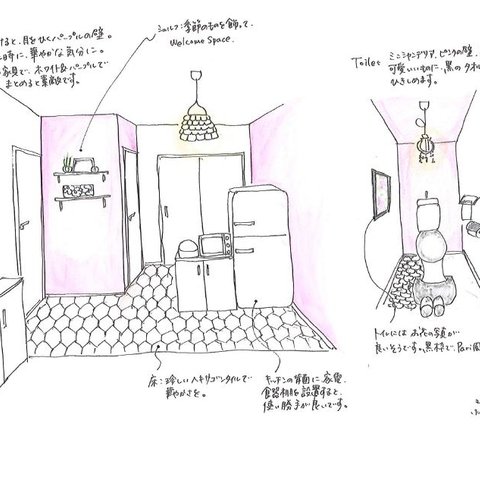 けると、目をひくパープルの壁。
時に、華やかな気分に。
家具で、ホワイト&パープルで
まとめると素敵です。
シェルフ:季節のものを飾って、
Welcome Space.
Toilet ミニシャンデリア、ピンクの壁。
可愛いいものに、黒のタオル
ひきしめます。
トイレには お花の写真が
良いそうです。黒枠で、
床:珍しいヘキサゴンタイルで
華やかさを。
キッチンの背面に、家電、
食器棚を設置すると、
使い勝手が良いです。